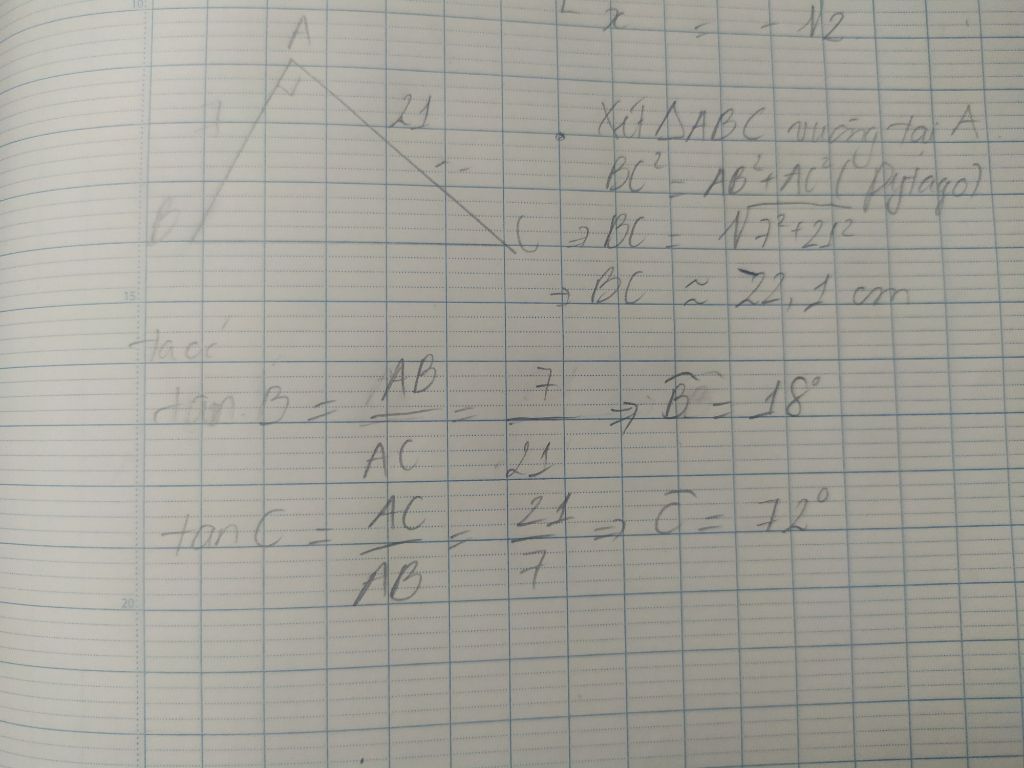 x = -√2
A
7
21
B
C
Xét △ABC vuông tại A
BC² = AB² + AC² (Pytago)
⇒ BC = √7²+21²
⇒ BC ≈ 22,1 cm
ta có
tan B = AB/AC = 7/21 ⇒ B̂ = 18°
tan C = AC/AB = 21/7 ⇒ Ĉ = 72°
10
15
20